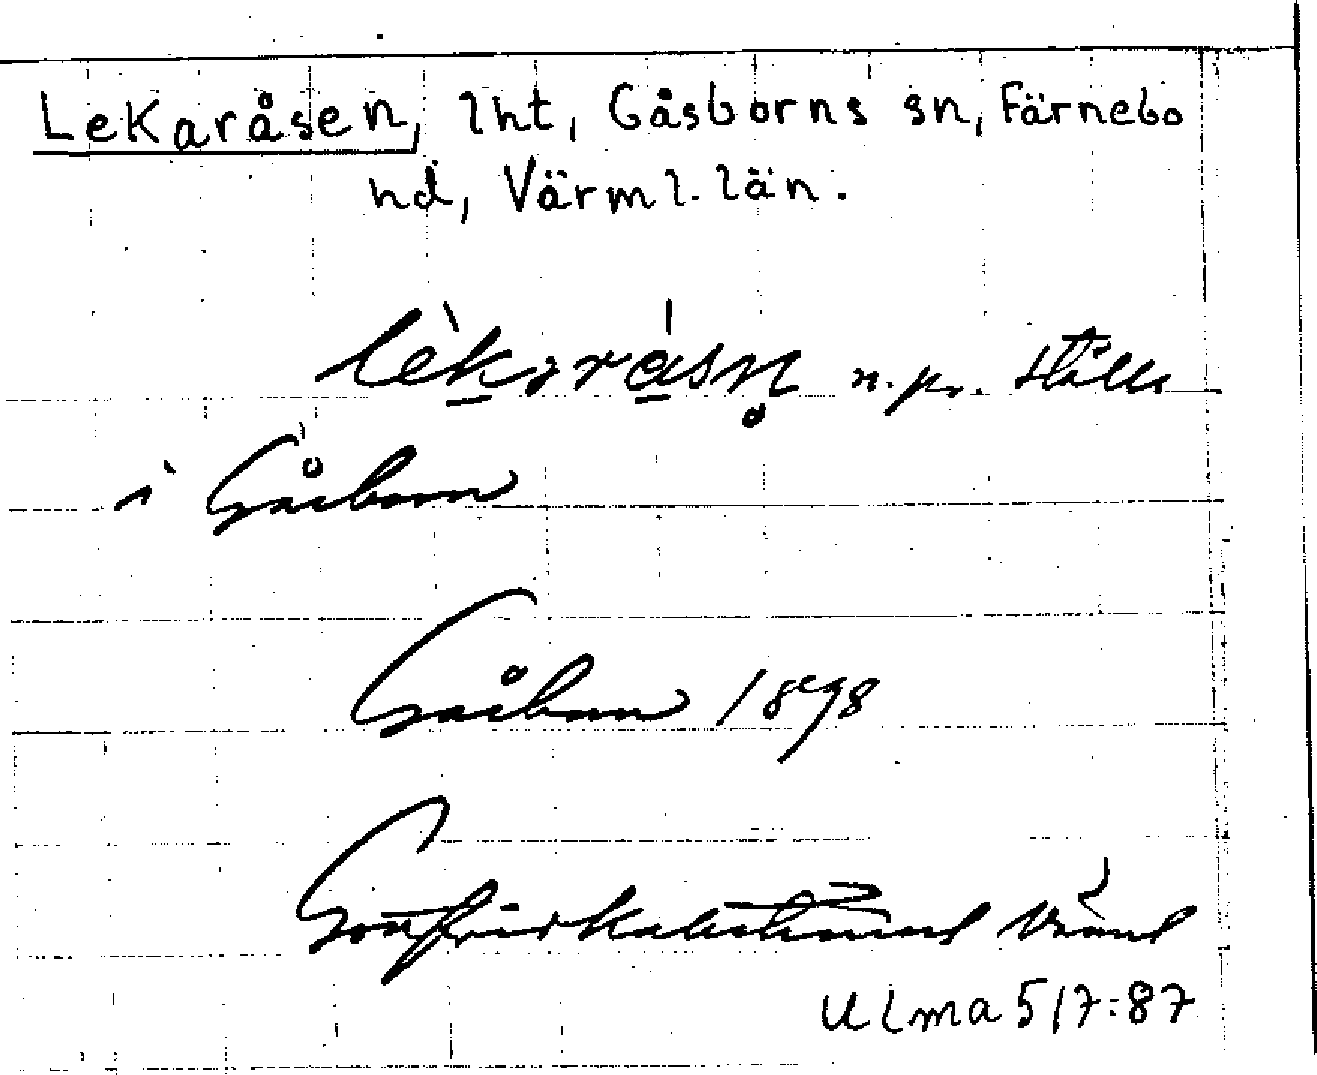 Lekaråsen, lht, Gåsborns sn, Färnebo
hd, Värml. län.
lèkaråsn̥ n. pr. ställe
i Gåsborn
Gåsborn 1898
Gottfrid Kallstenius
Ulma 517:87